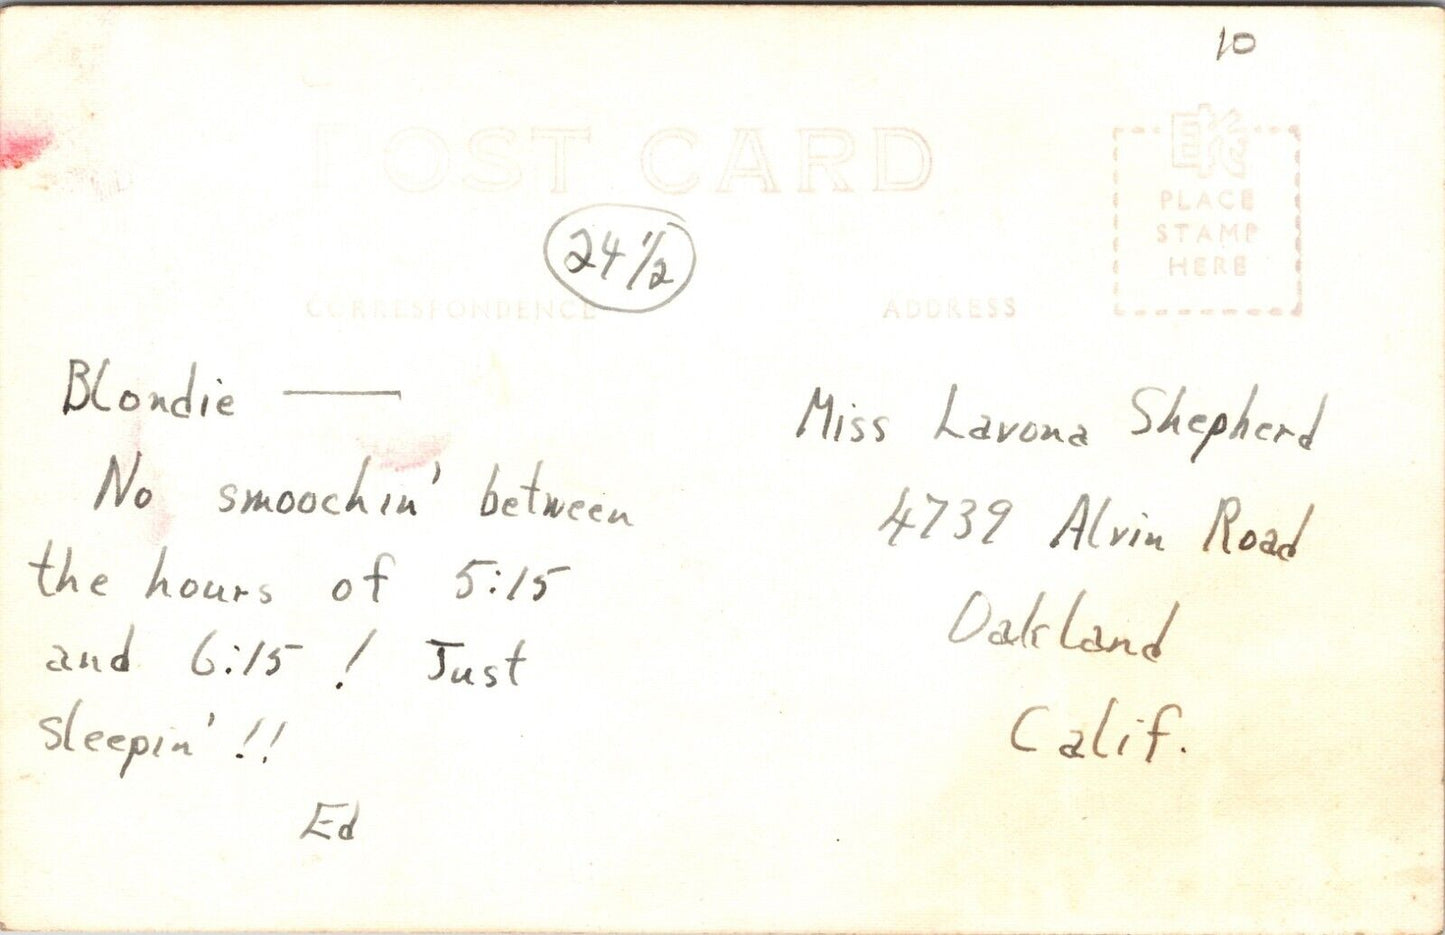 10
POST CARD
EKC
PLACE
STAMP
HERE
24 1/2
CORRESPONDENCE
ADDRESS
Blondie ——
No smoochin' between
the hours of 5:15
and 6:15 ! Just
sleepin' !!
Ed
Miss Lavona Shepherd
4739 Alvin Road
Oakland
Calif.